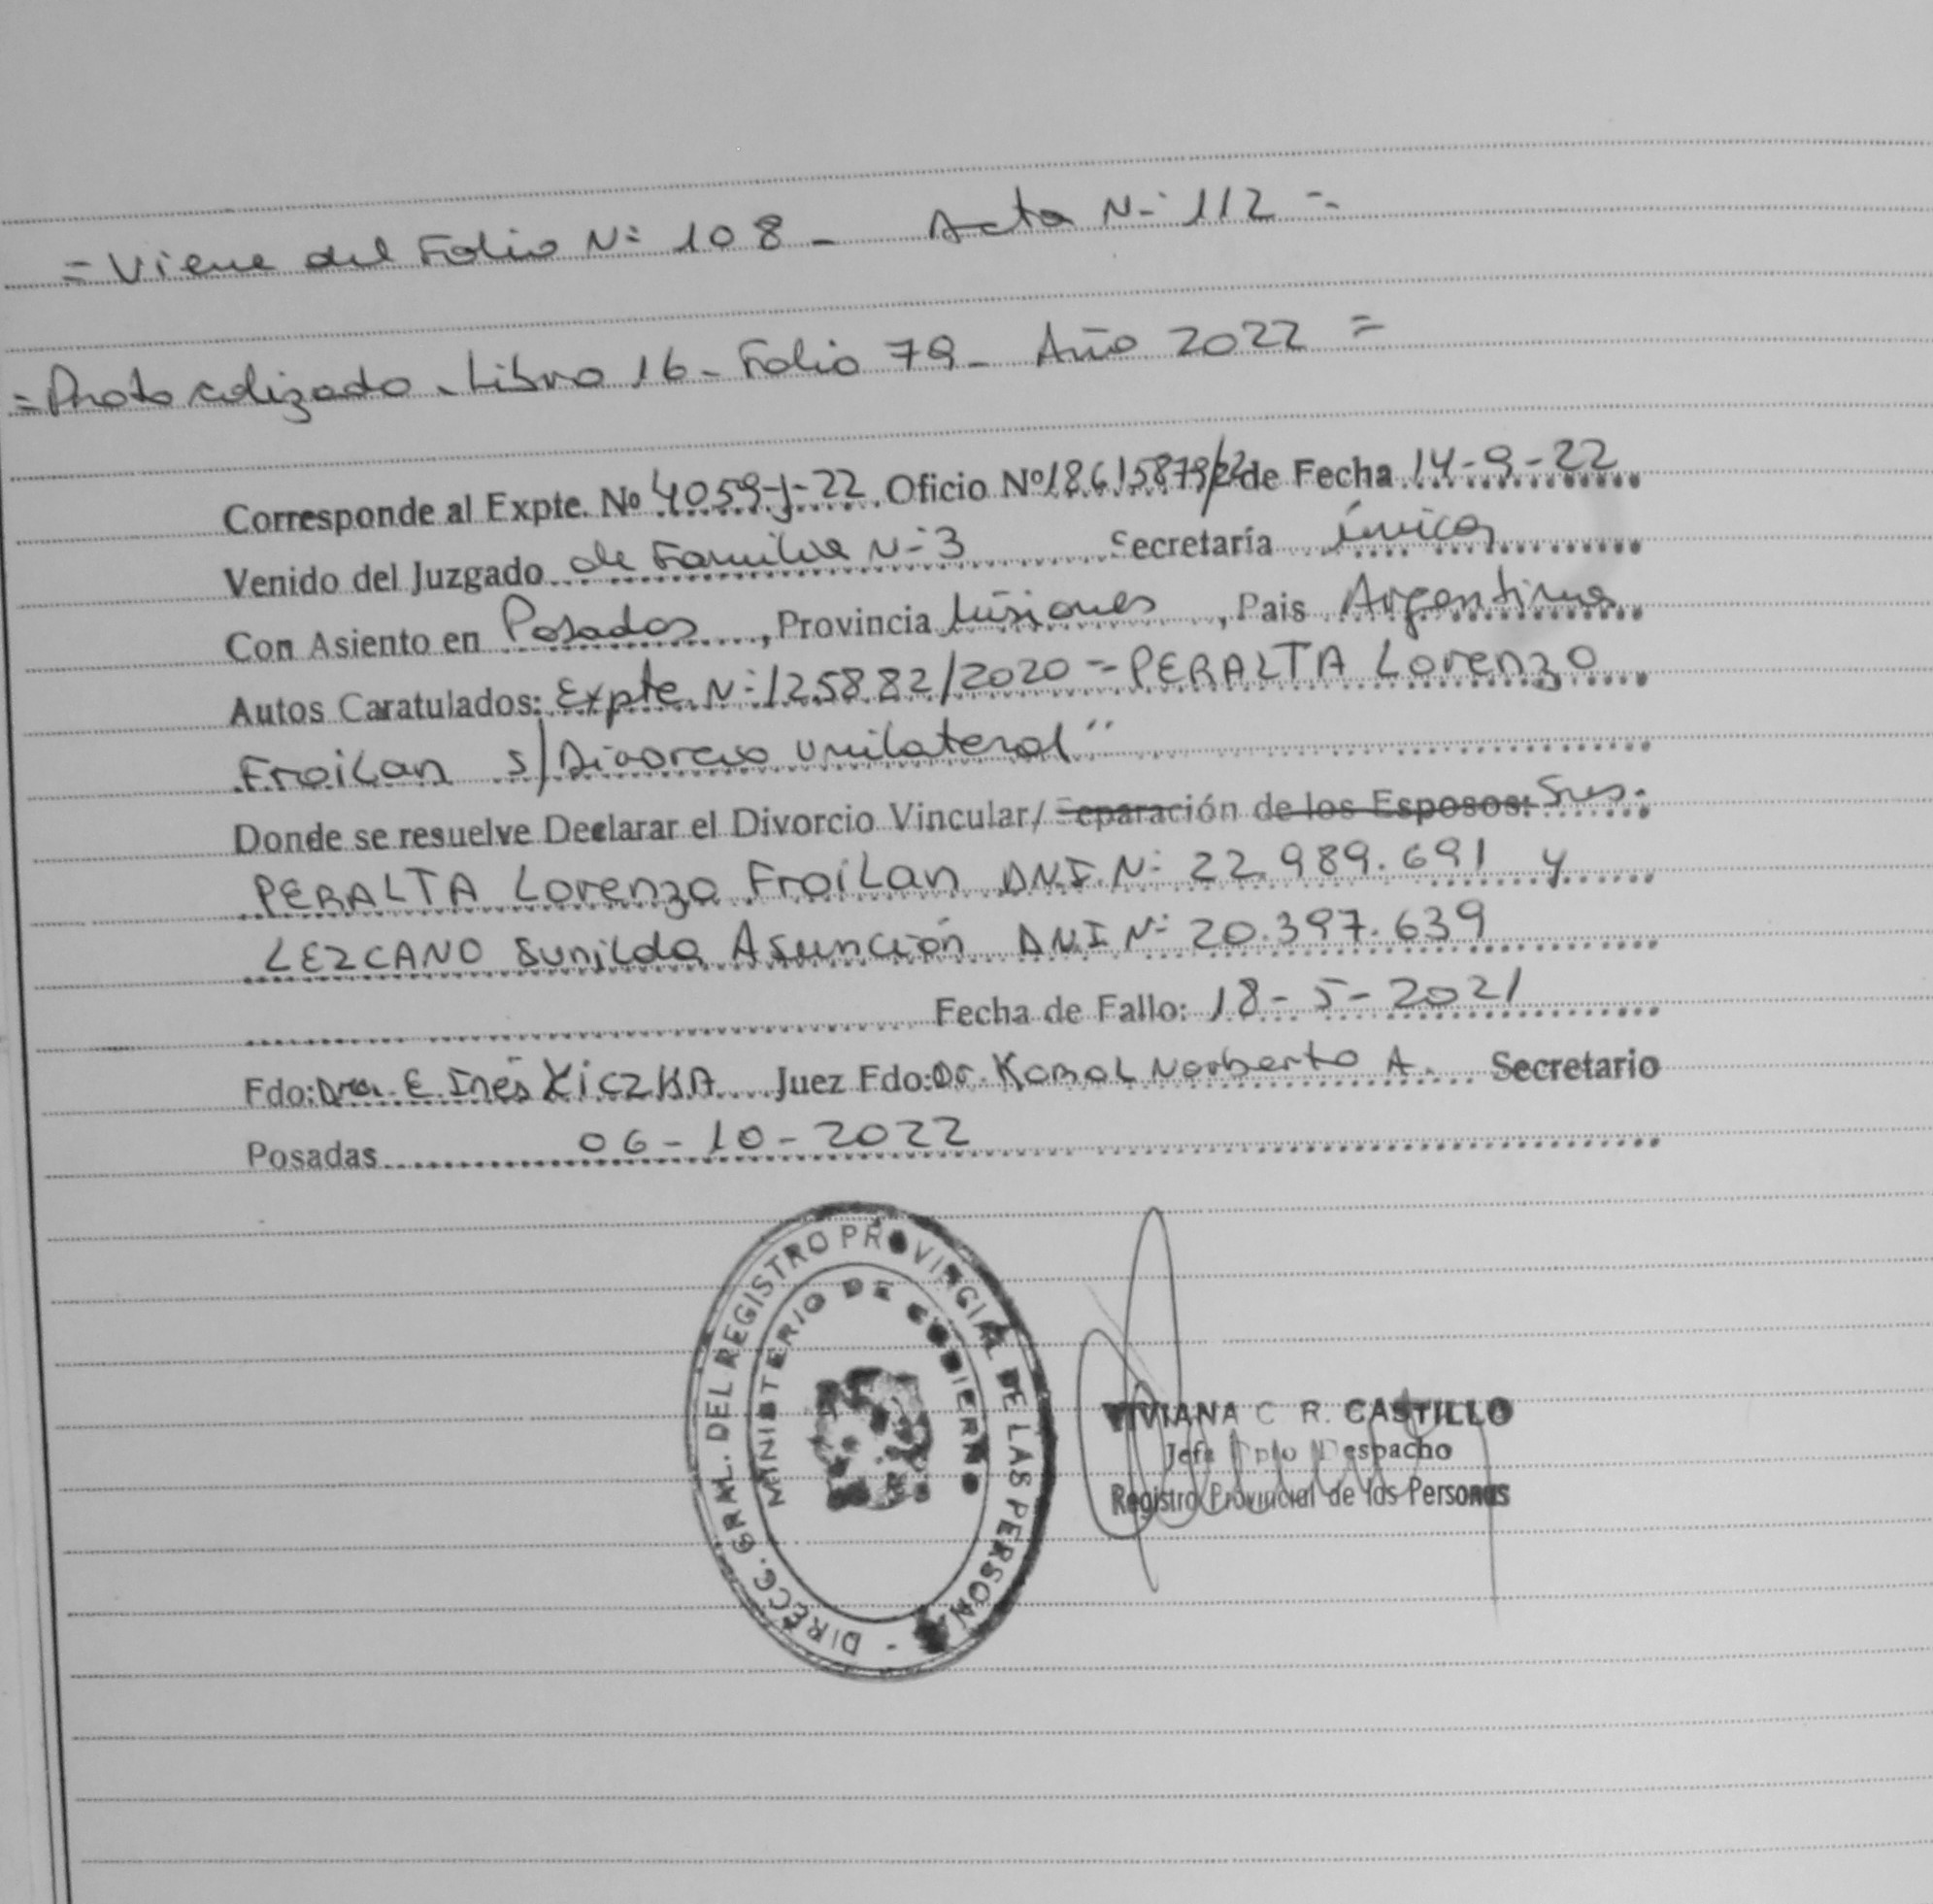 = Viene del Folio Nº 108 - Acta Nº 112 =
= Protocolizado - Libro 16 - Folio 79 - Año 2022 =
Corresponde al Expte. Nº 4059-J-22 Oficio Nº 18615879/22 de Fecha 14-9-22
Venido del Juzgado de Familia Nº 3 Secretaría única
Con Asiento en Posadas, Provincia Misiones, Pais Argentina
Autos Caratulados: Expte Nº 125882/2020 = PERALTA Lorenzo
Froilan s/Divorcio Unilateral"
Donde se resuelve Declarar el Divorcio Vincular/ Separación de los Esposos: Sres.
PERALTA Lorenzo Froilan DNI. Nº 22.989.691 y
LEZCANO Sunilda Asunción DNI Nº 20.397.639
Fecha de Fallo: 18-5-2021
Fdo: Dra. E Inés Juez Fdo: Dr. Kobol Norberto A. Secretario
Posadas 06-10-2022
DIRECC. GRAL. DEL REGISTRO PROVINCIAL DE LAS PERSONAS -
MINISTERIO DE GOBIERNO
VIVIANA C R. CASTILLO
Jefe Dpto Despacho
Registro Provincial de las Personas